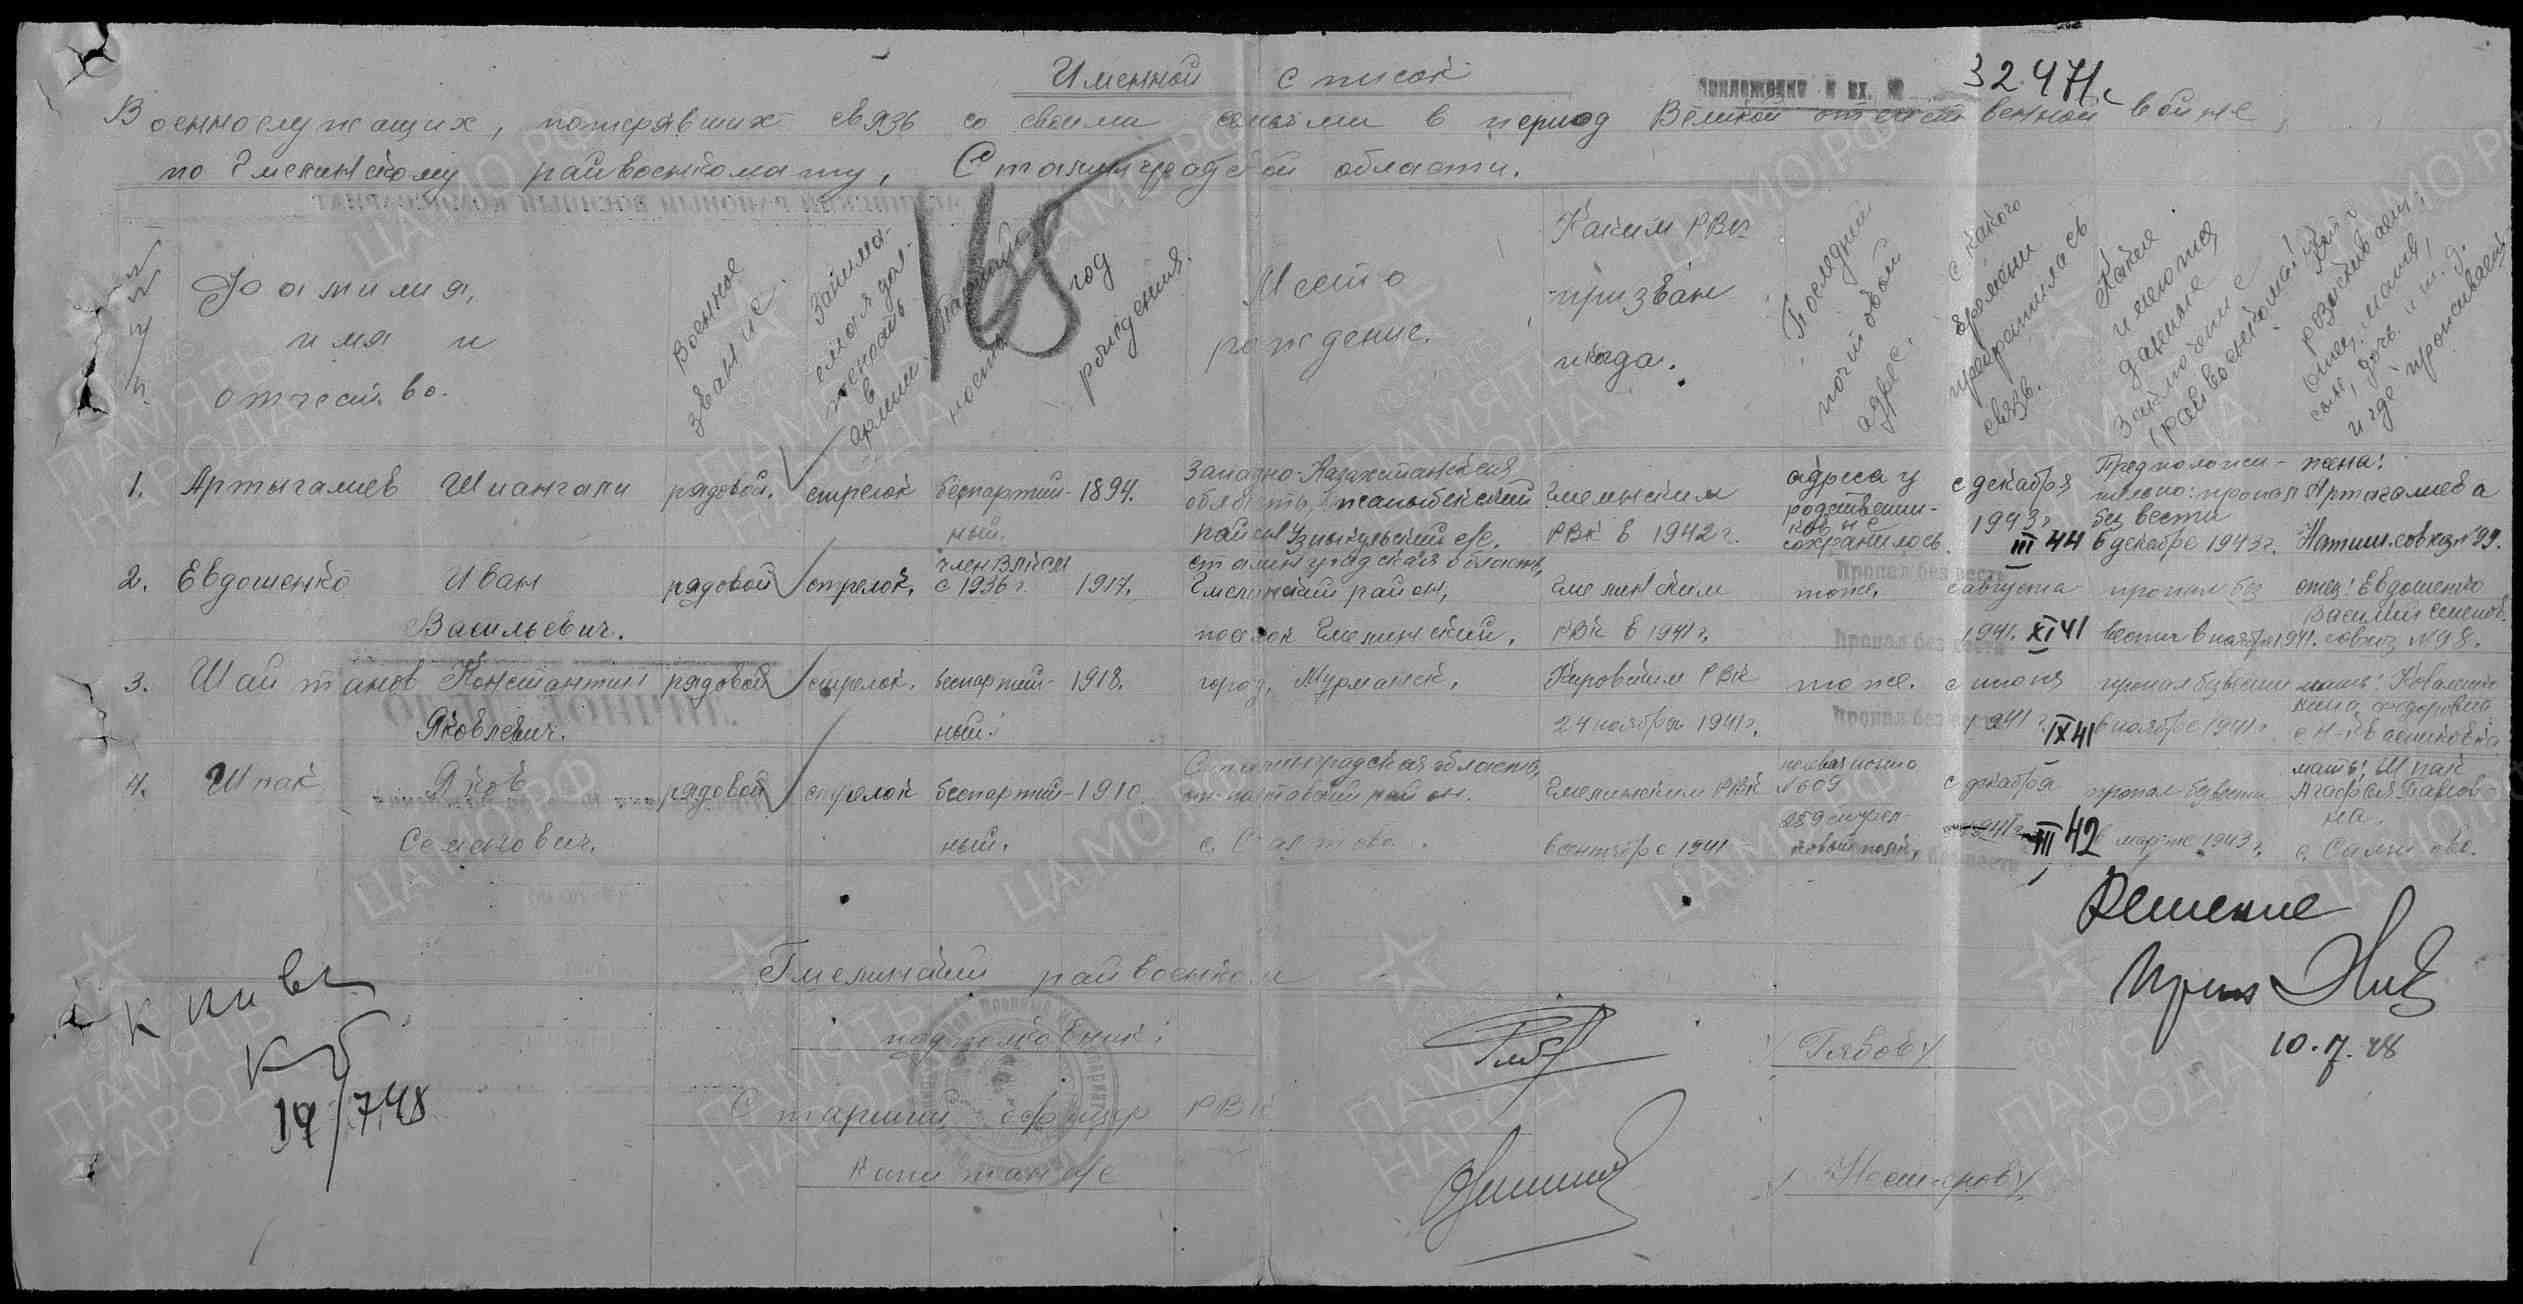 Именной список
Приложение к вх. № 32471с
Военнослужащих, потерявших связь со своими семьями в период Великой отечественной войне,
по Гмелинскому райвоенкомату, Сталинградской области.
168
№№ п/п
Фамилия, имя и отчество.
Военное звание.
Занимаемая должность в армии
Партийность
год рождения.
Место рождение.
Каким РВК призван когда.
Последний почтовый адрес.
с какого времени прекратилась связь.
Какие имеются данные заключение райвоенкомата
розыскивает: отец, мать, сын, дочь и т.д. и где проживает
1. Артыгалиев Шиангали рядовой. стрелок беспартийный. 1894. Западно-Казахстанская область, Джаныбекский район Узункульский с/с. Гмелинским РВК в 1942 г. адреса у родственников не сохранилось. с декабря 1943 г. III 44 Предположительно: пропал без вести в декабре 1943 г. жена: Артыгалиева совхоз №99.
2. Евдошенко Иван Васильевич. рядовой стрелок. член ВЛКСМ с 1936 г. 1917. Сталинградская область, Гмелинский район, поселок Гмелинский. Гмелинским РВК в 1941 г. тоже. с августа 1941. XI 41 пропал без вести в ноябре 1941. отец: Евдошенко Василий Семенов. совхоз №98.
Пропал без вести
3. Шайтанов Константин Яковлевич. рядовой стрелок. беспартийный. 1918. город, Мурманск. Кировским РВК 24 ноября 1941 г. тоже. с июня 1941 г. IX 41 пропал без вести в ноябре 1941 г. мать: Коваленко Федоровна
Пропал без вести
4. Шпак Яков Семенович. рядовой стрелок беспартийный. 1910 Сталинградская область, ст-полтавский район. с. Салтово. Гмелинским РВК в сентябре 1941 полевая почта №609 стрелковый полк, с декабря 1941 г. III 42 пропал без вести в марте 1943 г. мать: Шпак Агафья Павловна. с. Салтово.
Пропал без вести
Решение
10.7.48
Гмелинский райвоенком
подполковник: /Рябов/
Старший офицер РВК
Капитан а/с /Нестеров/
к
14/7.48
ЦАМО.РФ
ПАМЯТЬ НАРОДА